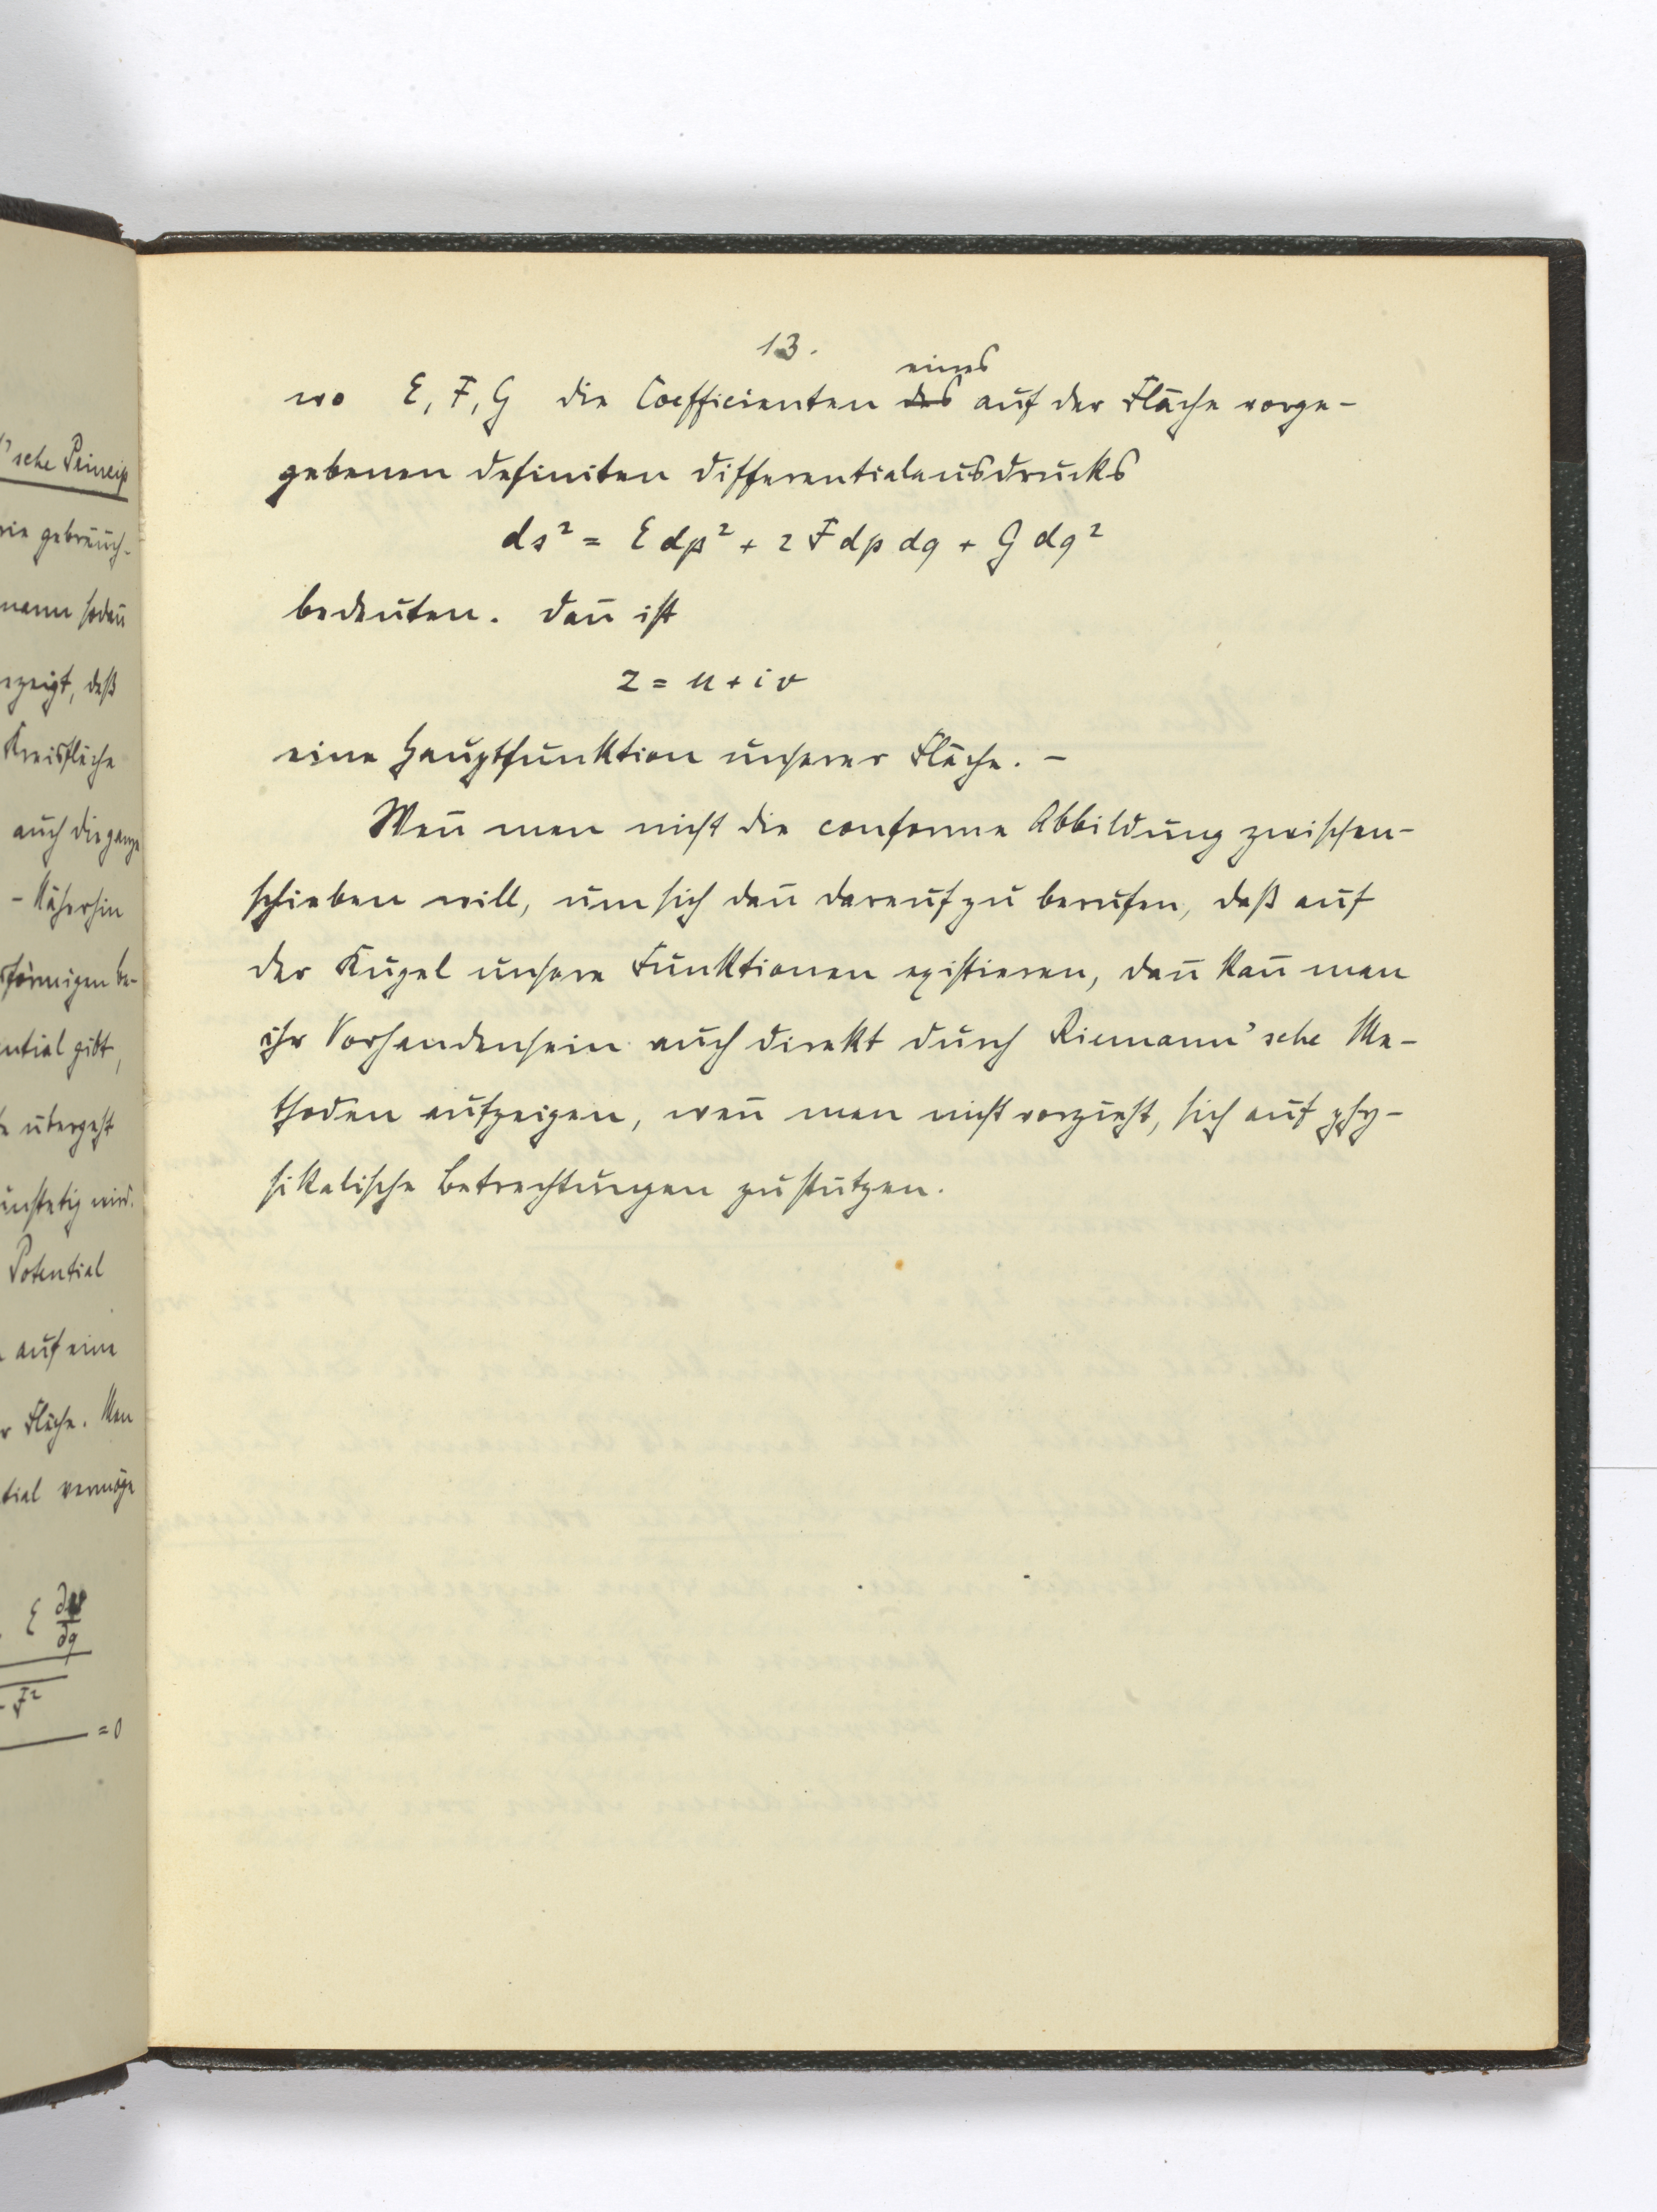 13.
wo E, F, G die Coefficienten des eines auf der Fläche vorge-
gebenen definiten Differentialausdrucks
ds² = E dp² + 2 F dp dq + G dq²
bedeuten. Dan̄ ist
z = u + i v
eine Hauptfunktion unserer Fläche. –
Wen̄ man nicht die conforme Abbildung zwischen-
schieben will, um sich dan̄ darauf zu berufen, daß auf
der Kugel unsere Funktionen existieren, dan̄ kan̄ man
ihr Vorhandensein auch direkt durch Riemann'sche Me-
thoden aufzeigen, wen̄ man nicht vorzieht, sich auf phy-
sikalische Betrachtungen zu stützen.
'sche Princip
gebräuch-
mann sodan̄
zeigt, daß
Kreisfläche
auch die ganze
– Näherhin
förmigen be-
ential gibt,
übergeht
unstetig wird.
Potential
auf eine
Fläche. Man
tial vermöge
= 0